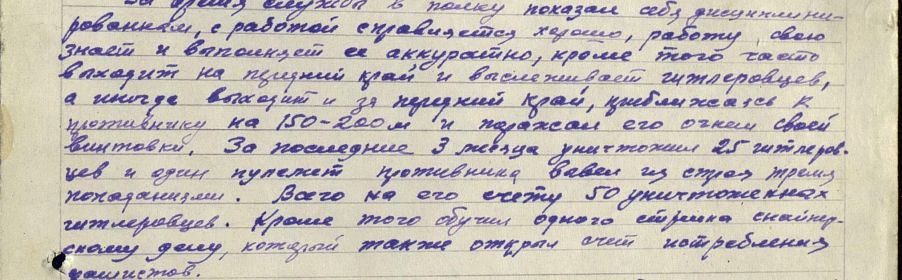 За время службы в полку показал себя дисциплини-
рованным, с работой справляется хорошо, работу свою
знает и выполняет ее аккуратно, кроме того часто
выходит на передний край и выслеживает гитлеровцев,
а иногда выходит и за передний край, приближаясь к
противнику на 150-200 м и поражал его огнем своей
винтовки. За последние 3 месяца уничтожил 25 гитлеров-
цев и один пулемет противника вывел из строя тремя
попаданиями. Всего на его счету 50 уничтоженных
гитлеровцев. Кроме того обучил одного стрелка снайпер-
скому делу, который также открыл счет истребления
фашистов.